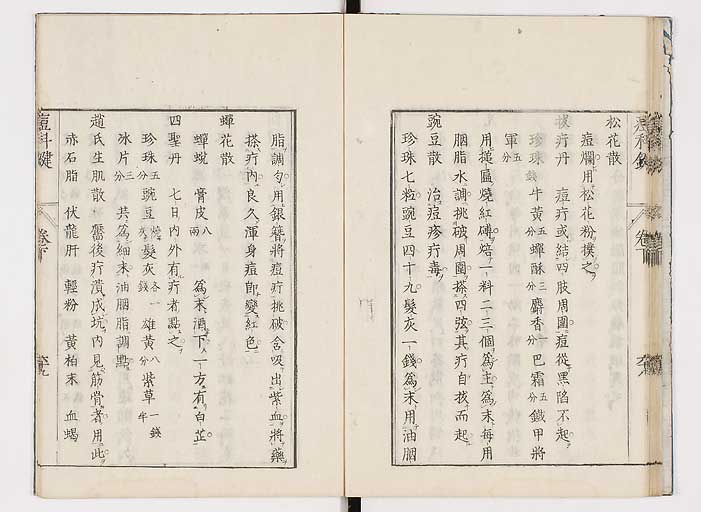 松花散
痘爛用松花粉撲之
拔疔丹 痘疔或結四肢周圍痘從黑陷不起
珍珠五錢牛黃五分蟬酥三分麝香一分巴霜五分鐵甲將
軍五分
用搥匾燒紅磚焙一料二三個爲主爲末每用
胭脂水調挑破周圍搭四弦其疔自拔而起
豌豆散 治痘疹疔毒
珍珠七粒豌豆四十九髮灰一錢爲末用油胭
脂調勻用銀簪將痘疔挑破舍吸出紫血將藥
搽疔內良久渾身痘即變紅色
蟬花散
蟬蛻 膏皮八兩 爲末酒下一方有白芷
四聖丹 七日內外有疔者點之
珍珠五分豌豆燒灰髮灰各一錢雄黃八分紫草一錢半
冰片三分共爲細末油胭脂調點
趙氏生肌散 靨後疔潰成坑內見筋骨者用此
赤石脂 伏龍肝 輕粉 黃柏末 血蝎
痘科鍵
卷下